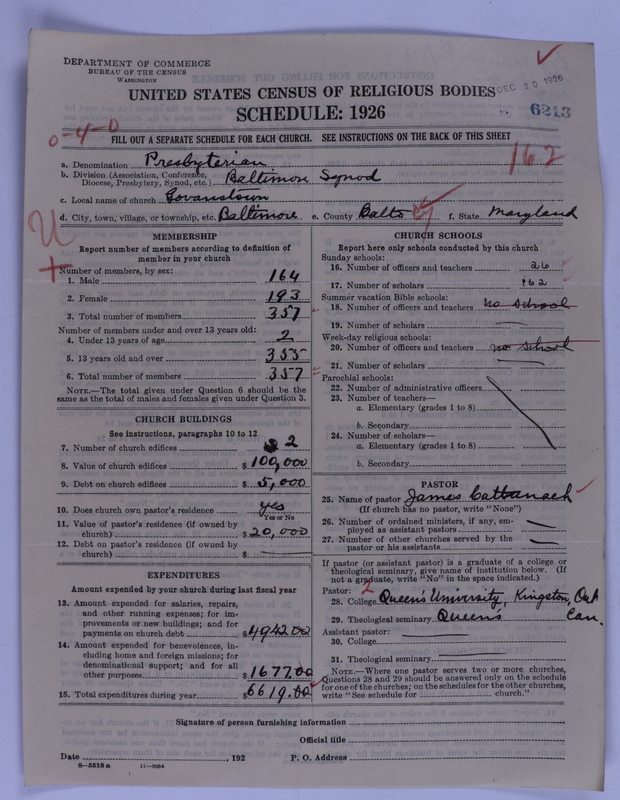 DEPARTMENT OF COMMERCE
BUREAU OF THE CENSUS
WASHINGTON
DEC 20 1926
UNITED STATES CENSUS OF RELIGIOUS BODIES
SCHEDULE: 1926
6213
0-4-0
FILL OUT A SEPARATE SCHEDULE FOR EACH CHURCH. SEE INSTRUCTIONS ON THE BACK OF THIS SHEET
162
a. Denomination Presbyterian
b. Division (Association, Conference, Diocese, Presbytery, Synod, etc.) Baltimore Synod
c. Local name of church Govanstown
d. City, town, village, or township, etc. Baltimore e. County Balto Cy f. State Maryland
U
+
MEMBERSHIP
Report number of members according to definition of
member in your church
Number of members, by sex:
1. Male 164
2. Female 193
3. Total number of members 357
Number of members under and over 13 years old:
4. Under 13 years of age 2
5. 13 years old and over 355
6. Total number of members 357
NOTE.—The total given under Question 6 should be the
same as the total of males and females given under Question 3.
CHURCH BUILDINGS
See instructions, paragraphs 10 to 12
7. Number of church edifices 2
8. Value of church edifices $100,000
9. Debt on church edifices $5,000
10. Does church own pastor's residence yes
Yes or No
11. Value of pastor's residence (if owned by
church) $20,000
12. Debt on pastor's residence (if owned by
church) $
EXPENDITURES
Amount expended by your church during last fiscal year
13. Amount expended for salaries, repairs,
and other running expenses; for im-
provements or new buildings; and for
payments on church debt $4942.00
14. Amount expended for benevolences, in-
cluding home and foreign missions; for
denominational support; and for all
other purposes $1677.00
15. Total expenditures during year $6619.00
CHURCH SCHOOLS
Report here only schools conducted by this church
Sunday schools:
16. Number of officers and teachers 26
17. Number of scholars 162
Summer vacation Bible schools:
18. Number of officers and teachers no school
19. Number of scholars
Week-day religious schools:
20. Number of officers and teachers no school
21. Number of scholars
Parochial schools:
22. Number of administrative officers
23. Number of teachers—
a. Elementary (grades 1 to 8)
b. Secondary
24. Number of scholars—
a. Elementary (grades 1 to 8)
b. Secondary
PASTOR
25. Name of pastor James Cattanach
(If church has no pastor, write "None")
26. Number of ordained ministers, if any, em-
ployed as assistant pastors
27. Number of other churches served by the
pastor or his assistants
If pastor (or assistant pastor) is a graduate of a college or
theological seminary, give name of institution below. (If
not a graduate, write "No" in the space indicated.)
Pastor: 2
28. College Queen's University, Kingston, Ont
29. Theological seminary Queens Can.
Assistant pastor:
30. College
31. Theological seminary
NOTE.—Where one pastor serves two or more churches,
Questions 28 and 29 should be answered only on the schedule
for one of the churches; on the schedules for the other churches,
write "See schedule for church."
Signature of person furnishing information
Official title
Date , 192 P. O. Address
8—5518 a 11—9054